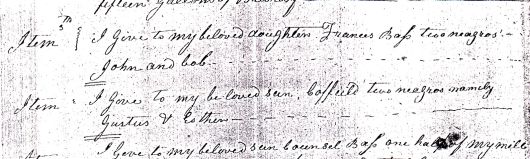 fifteen gallons of
Item 5th { I give to my beloved daughter Frances Bass two negros
John and bob
Item I Give to my be loved sun. Coffield two negros namely
Justus & Esther
I Give to my beloved sun Counsel Bass one half of my mill